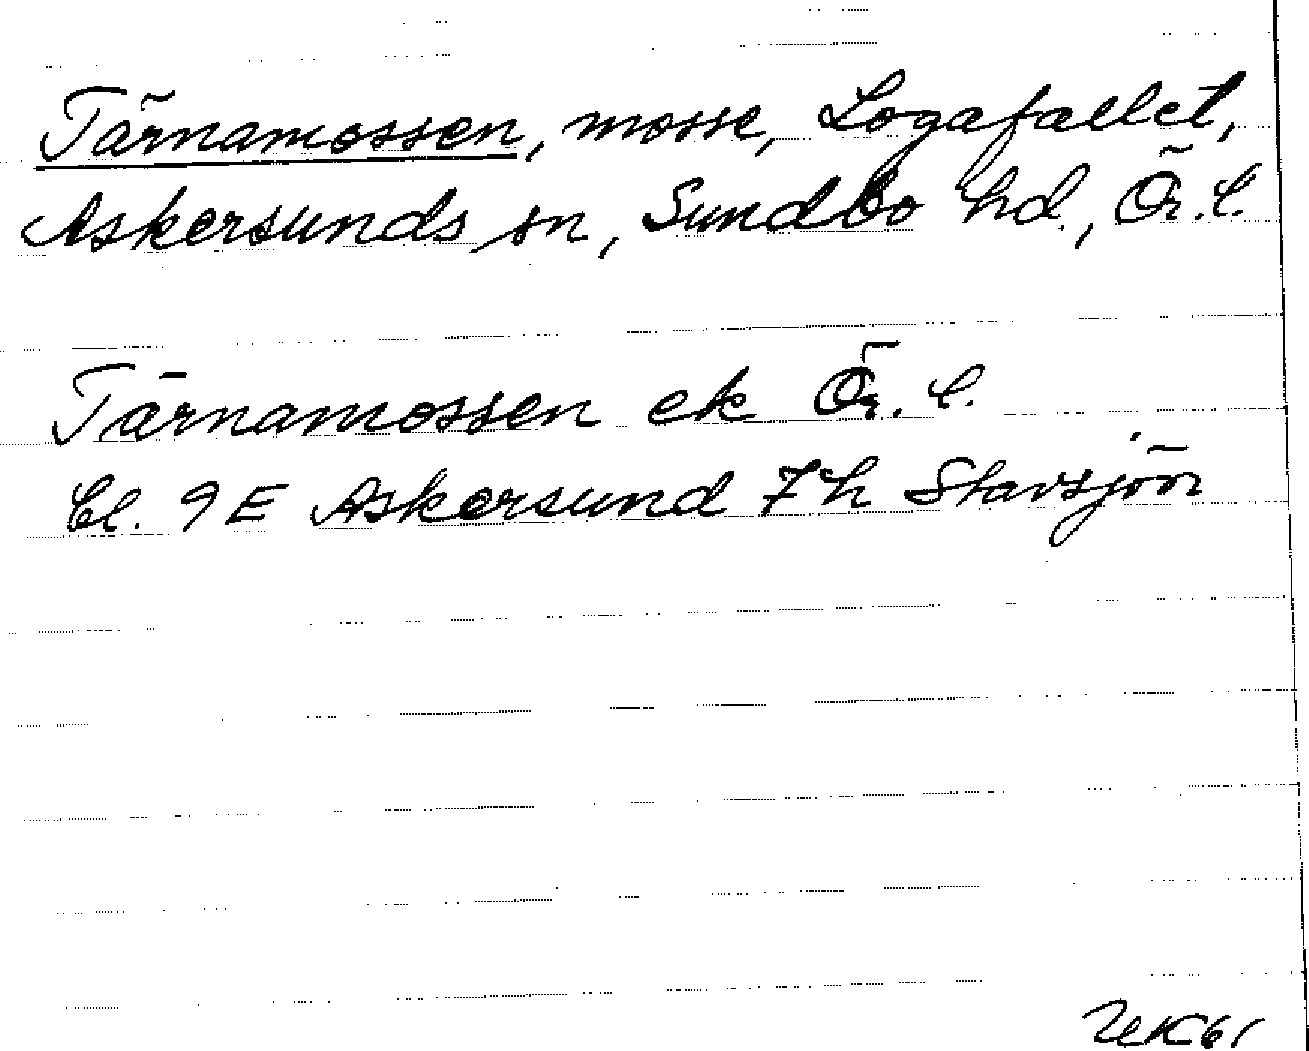 Tärnamossen, mosse, Logafallet,
Askersunds sn, Sundbo hd., Ör. l.
Tärnamossen ek Ör. l.
Bl. 9 E Askersund 7 h Stavsjön